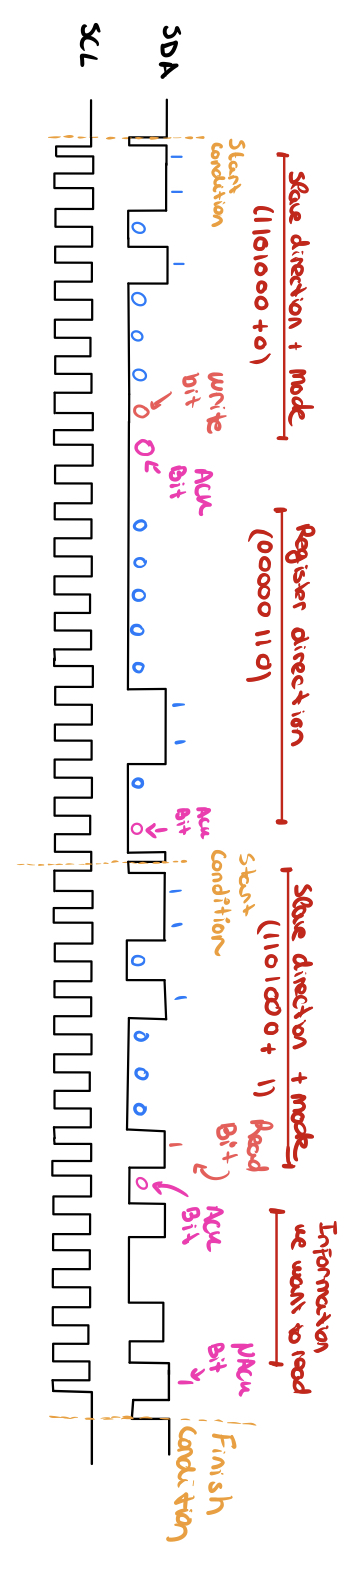 Slave direction + mode
(1101000 + 0)
Register direction
(00000 110)
Slave direction + mode
(1101000 + 1)
Information
we want to read
Start
condition
write
bit
ACK
Bit
ACK
Bit
Start
Condition
Read
Bit
ACK
Bit
NACK
Bit
Finish
Condition
SDA
1 1 0 1 0 0 0 0 0 0 0 0 0 0 1 1 0 0 1 1 0 1 0 0 0 1 0 1
SCL